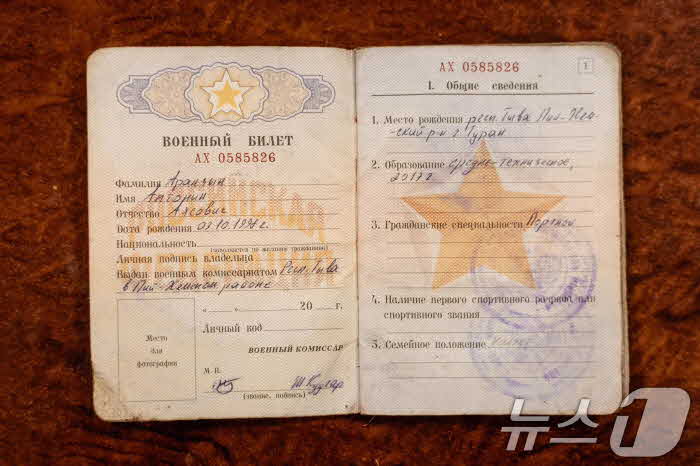 ВОЕННЫЙ БИЛЕТ
АХ 0585826
Фамилия Аранчын
Имя
Отчество Алксович
Дата рождения 09.10.199 г.
Национальность
(заполняется по желанию гражданина)
Личная подпись владельца
Выдан военным комиссариатом Респ. Тыва
в Пий-Хемском районе
„ “ 20 г.
Личный код
ВОЕННЫЙ КОМИССАР
Место
для
фотографии
М П.
(звание, подпись)
АХ 0585826
1
I. Общие сведения
1. Место рождения респ. Тыва Пий-Хем-
ский р-н г. Туран
2. Образование средне-техническое,
2017 г
3. Гражданские специальности
4. Наличие первого спортивного разряда или
спортивного звания
5. Семейное положение
뉴스1